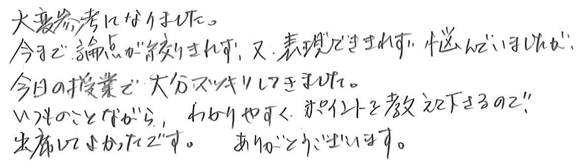 大変参考になりました。
今まで論点が絞りきれず、又、表現でききれず、悩んでいましたが、
今日の授業で大分スッキリしてきました。
いつものことながら、わかりやすく、ポイントを教えて下さるので、
出席してよかったです。 ありがとうございます。